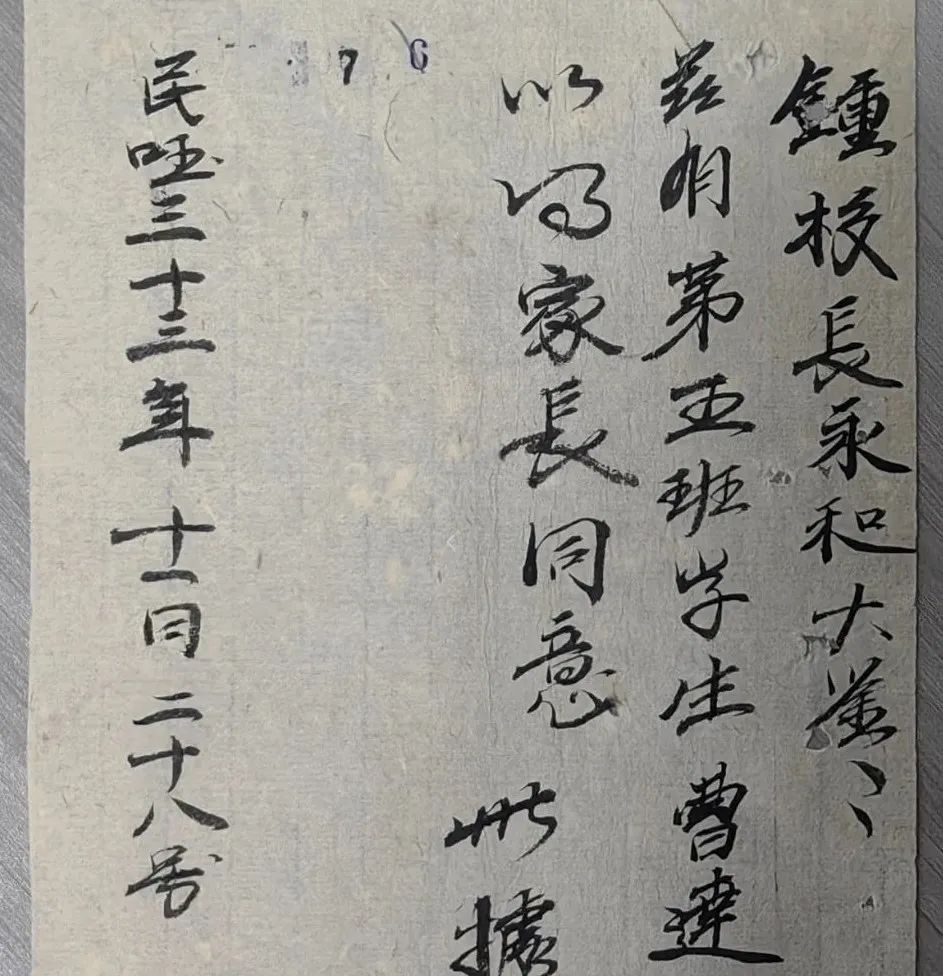 7 6
鍾校長永和大鉴：
兹有第五班学生曹達
以得家長同意
此據
民国三十三年十一月二十八号